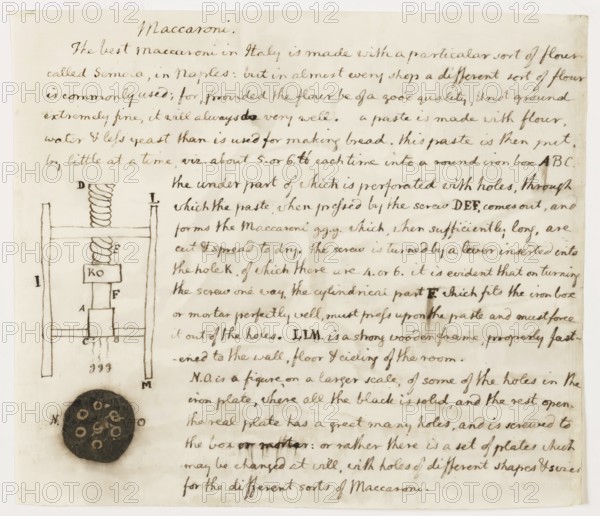 Maccaroni.
The best maccaroni in Italy is made with a particular sort of flour
called Semola, in Naples: but in almost every shop a different sort of flour
is commonly used; for, provided the flour be of a good quality, & not ground
extremely fine, it will always do very well. a paste is made with flour,
water & less yeast than is used for making bread. this paste is then put,
by little at a time, viz. about 5. or 6. ℔ each time into a round iron box ABC.
the under part of which is perforated with holes, through
which the paste, when pressed by the screw DEF, comes out, and
forms the Maccaroni g.g.g. which, when sufficiently long, are
cut & spread to dry. the screw is turned by a lever inserted into
the hole K, of which there are 4. or 6. it is evident that on turning
the screw one way, the cylindrical part F. which fits the iron box
or mortar perfectly well, must press upon the paste and must force
it out of the holes. LLM. is a strong wooden frame, properly fast-
ened to the wall, floor & cieling of the room.
N.O. is a figure, on a larger scale, of some of the holes in the
iron plate, where all the black is solid, and the rest open.
the real plate has a great many holes, and is screwed to
the box or mortar: or rather there is a set of plates which
may be changed at will, with holes of different shapes & sizes
for the different sorts of Maccaroni.
D
L
E
I
KO
F
A
C
B
g g g
M
N.
O